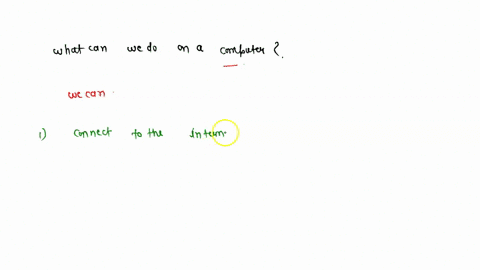 what can we do on a computer?.
we can.
1) connect to the intern